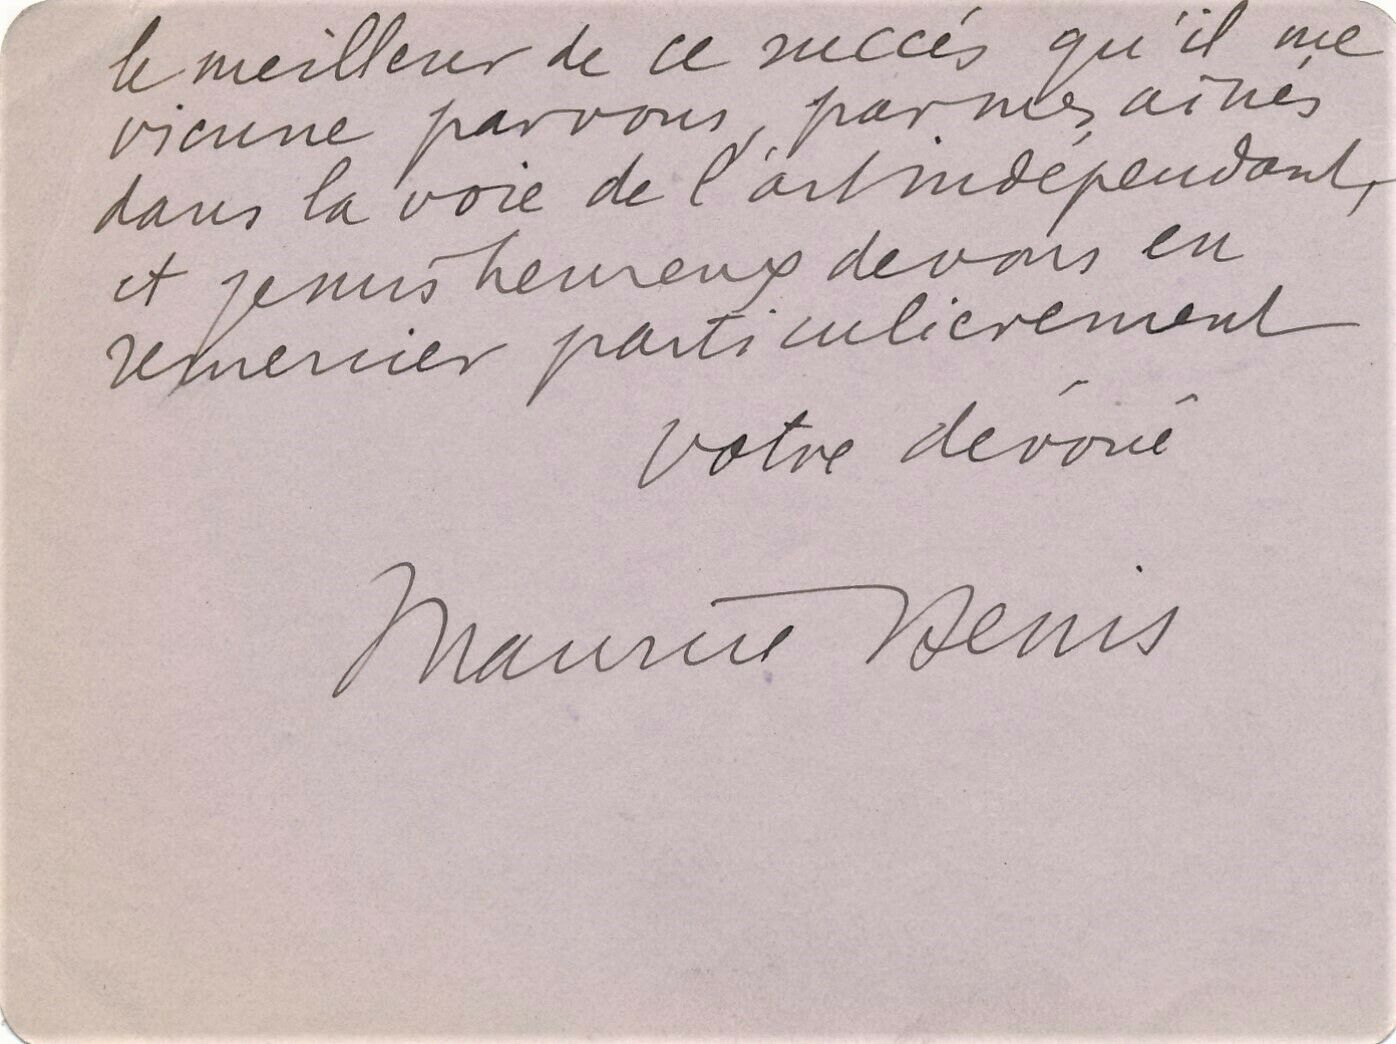 le meilleur de ce succès qu'il me
vienne par vous, par mes aînés
dans la voie de l'art indépendant,
et je suis heureux de vous en
remercier particulièrement
votre dévoué
Maurice Denis